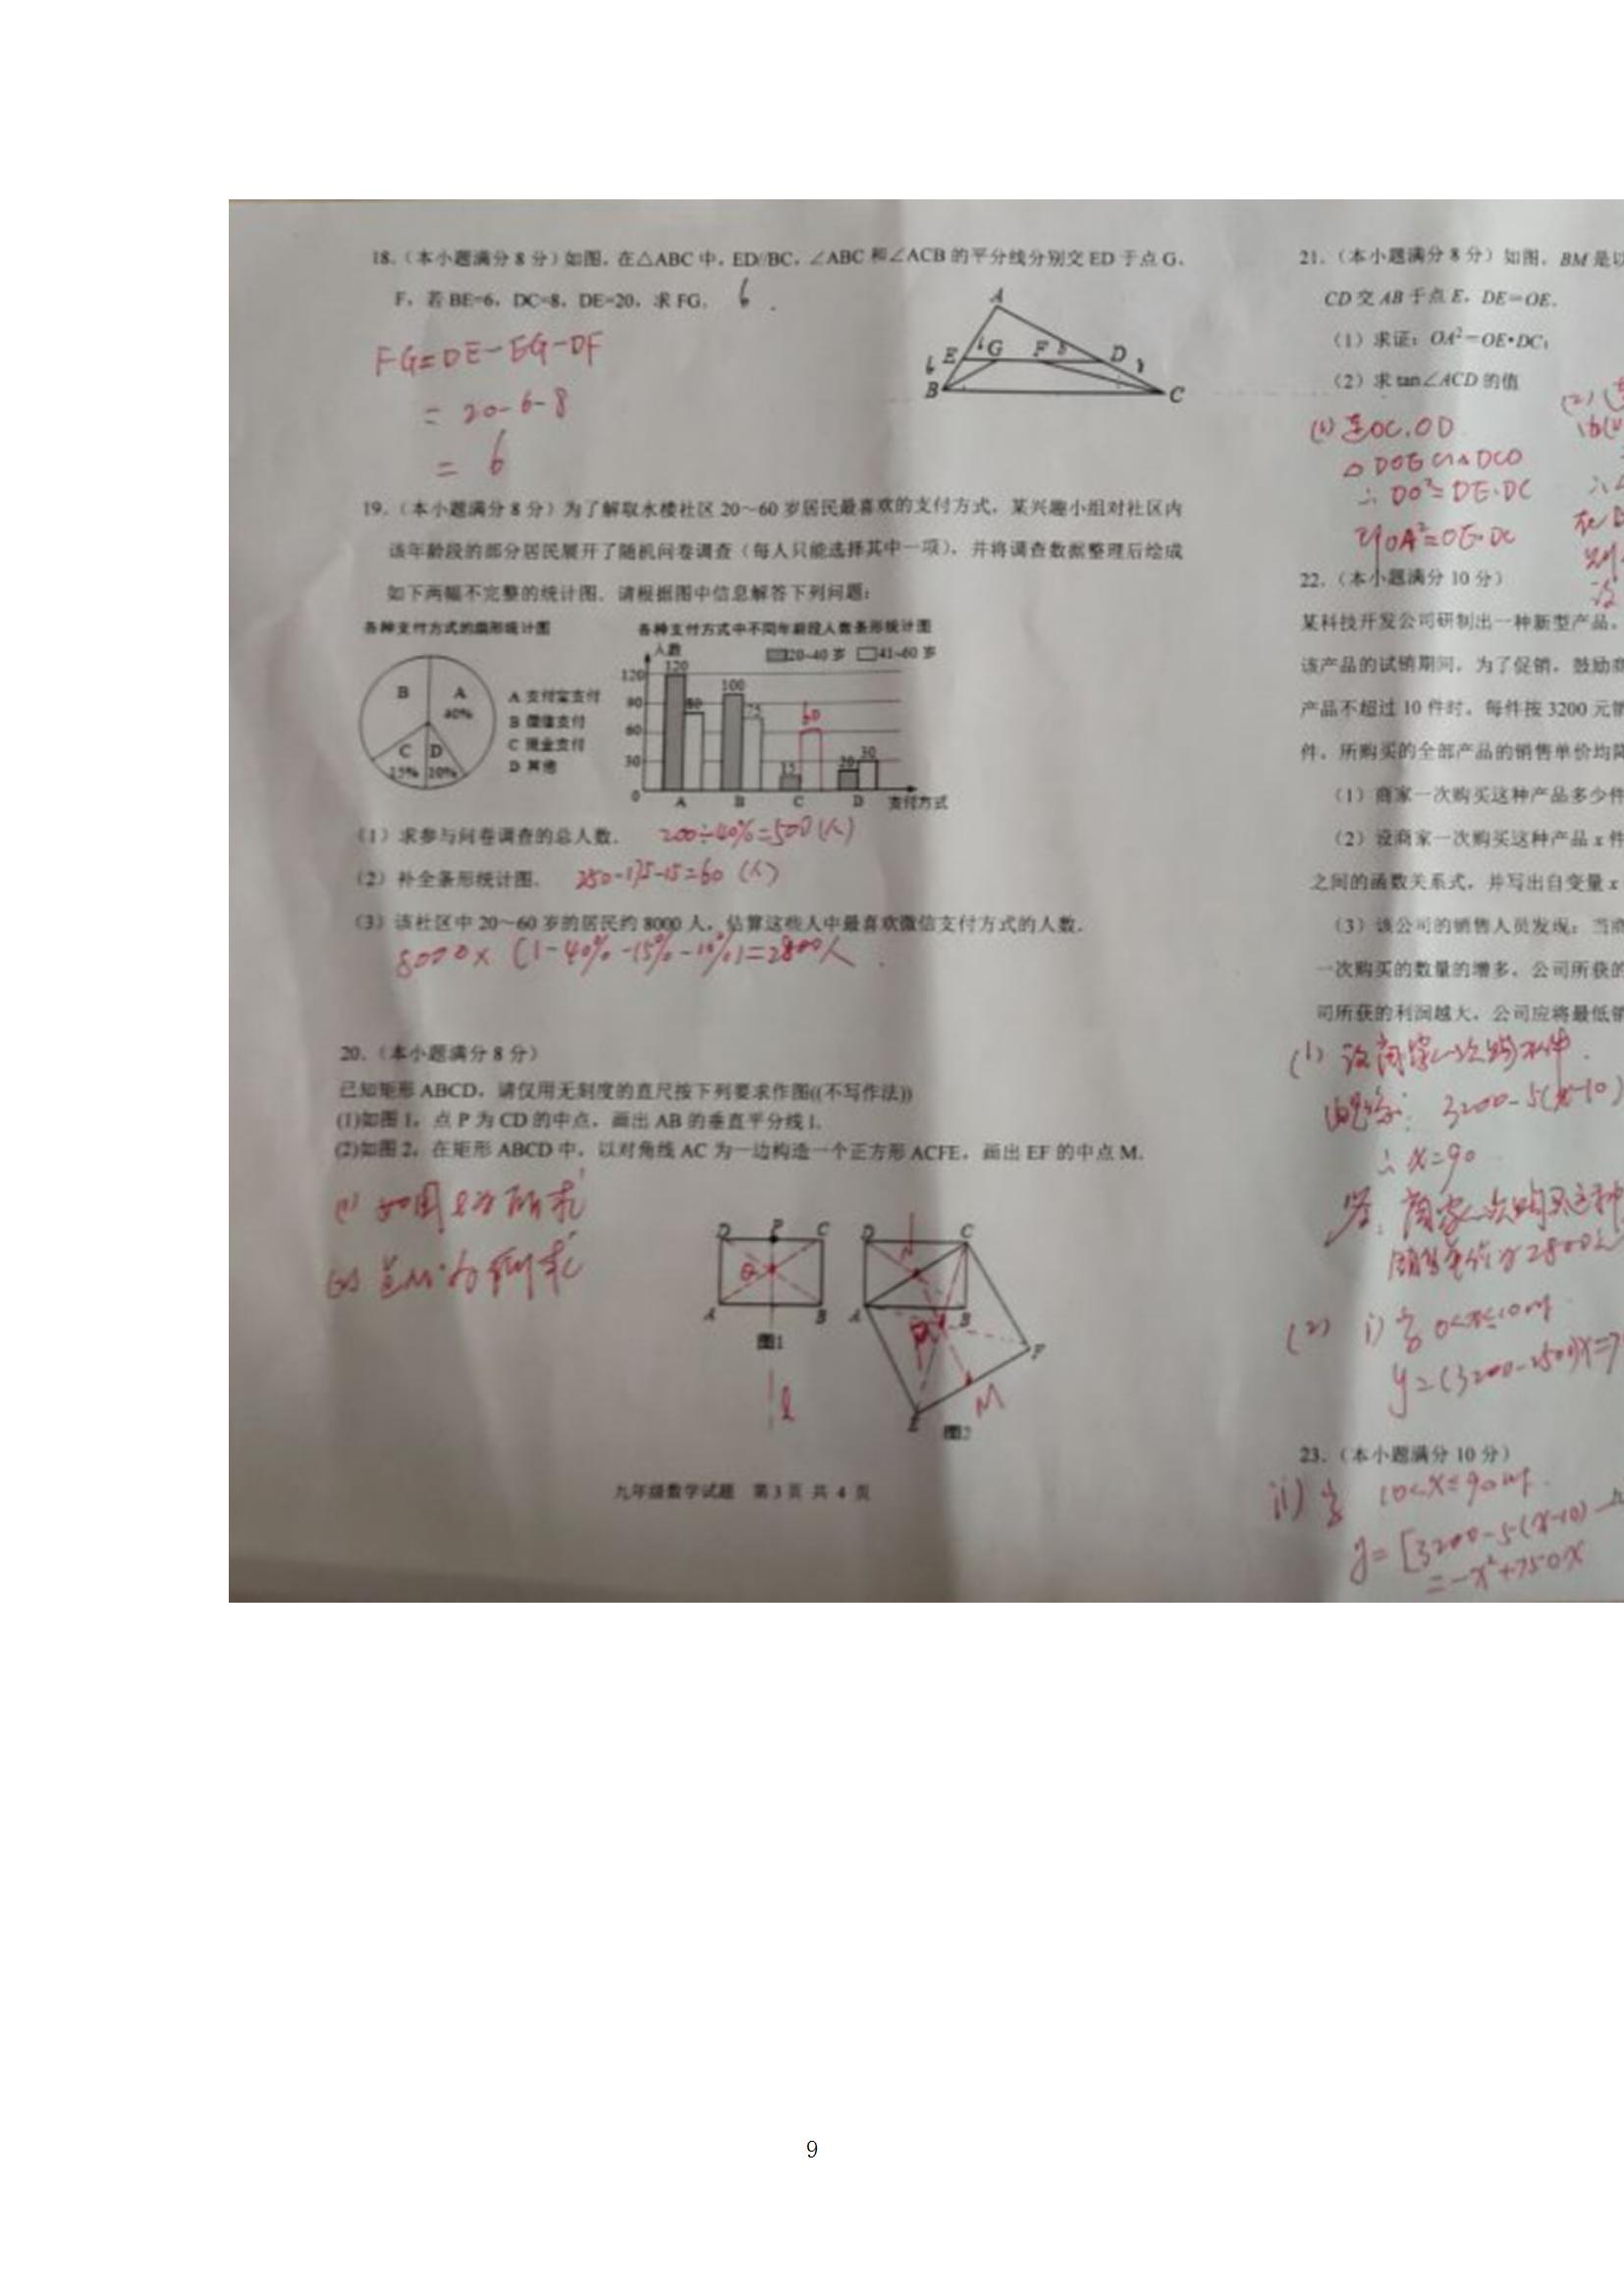 18.（本小题满分 8 分）如图，在△ABC 中，ED//BC，∠ABC 和∠ACB 的平分线分别交 ED 于点 G、
F，若 BE=6，DC=8，DE=20，求 FG. 6 .
A
E 6 G F 8 D
6 8
B C
FG=DE-EG-DF
= 20-6-8
= 6
19.（本小题满分 8 分）为了解取水楼社区 20～60 岁居民最喜欢的支付方式，某兴趣小组对社区内
该年龄段的部分居民展开了随机问卷调查（每人只能选择其中一项），并将调查数据整理后绘成
如下两幅不完整的统计图，请根据图中信息解答下列问题：
各种支付方式的扇形统计图
B A
40%
C D
15% 10%
A 支付宝支付
B 微信支付
C 现金支付
D 其他
各种支付方式中不同年龄段人数条形统计图
人数
20~40 岁 41~60 岁
120
90
60
30
0
120 80 100 75 15 60 20 30
A B C D 支付方式
（1）求参与问卷调查的总人数. 200÷40%=500（人）
（2）补全条形统计图. 250-175-15=60（人）
（3）该社区中 20～60 岁的居民约 8000 人，估算这些人中最喜欢微信支付方式的人数.
8000×(1-40%-15%-10%)=2800人
20.（本小题满分 8 分）
已知矩形 ABCD，请仅用无刻度的直尺按下列要求作图((不写作法))
(1)如图 1，点 P 为 CD 的中点，画出 AB 的垂直平分线 l.
(2)如图 2，在矩形 ABCD 中，以对角线 AC 为一边构造一个正方形 ACFE，画出 EF 的中点 M.
(1) 如图 l为所求
(2) 点M为所求
D P C
A B
图1
l
D C
A B
F
E M
图2
九年级数学试题 第 3 页 共 4 页
21.（本小题满分 8 分）如图，BM 是以
CD 交 AB 于点 E，DE=OE.
（1）求证：OA²=OE•DC；
（2）求 tan∠ACD 的值
(1) 连OC.OD
△DOE∽△DCO
∴ DO²=DE·DC
即OA²=OE·DC
22.（本小题满分 10 分）
某科技开发公司研制出一种新型产品，
该产品的试销期间，为了促销，鼓励商
产品不超过 10 件时，每件按 3200 元销
件，所购买的全部产品的销售单价均降
（1）商家一次购买这种产品多少件
（2）设商家一次购买这种产品 x 件
之间的函数关系式，并写出自变量 x
（3）该公司的销售人员发现：当商
一次购买的数量的增多，公司所获的
司所获的利润越大，公司应将最低销
(1) 设商家一次购x件.
由题意: 3200-5(x-10)
∴ x=90
答: 商家一次购买这种
销售单价为2800
(2) i) 当 0<x≤10时
y=(3200-2500)x=7
23.（本小题满分 10 分）
ii) 当 10<x≤90时.
y=[3200-5(x-10)-